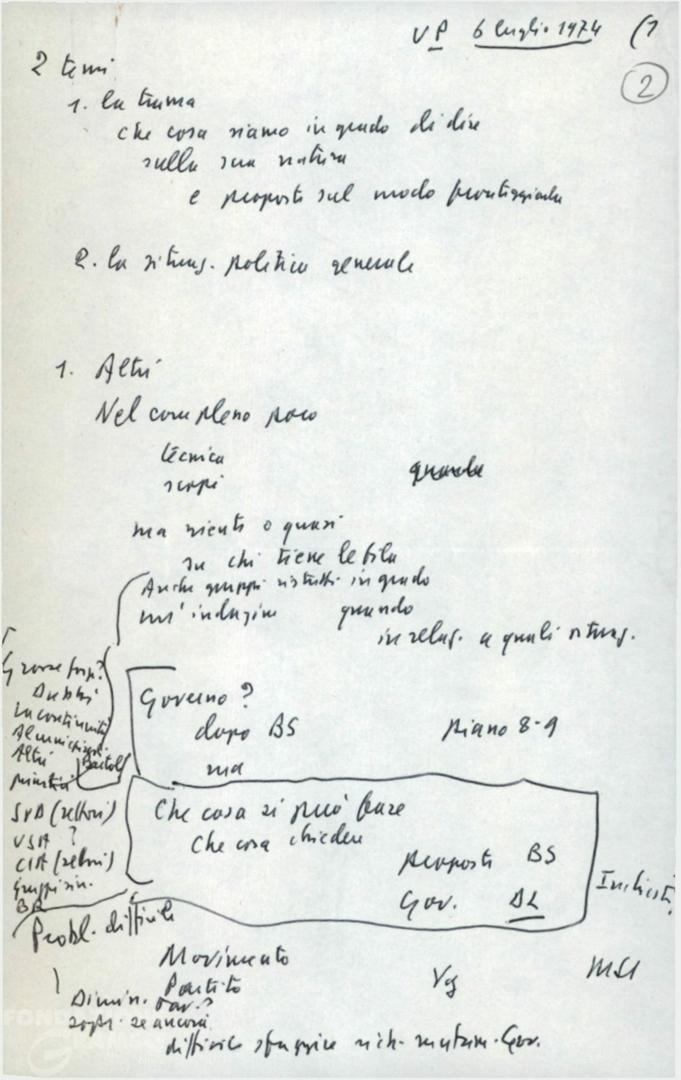 VP 6 luglio 1974 (1
2
2 temi
1. la trama
che cosa siamo in grado di dire
sulla sua natura
e proposte sul modo fronteggiarla
2. la situaz. politica generale
1. Altri
Nel complesso poco
tecnica
scopi
ma niente o quasi
su chi tiene le fila
Anche gruppi ristretti in grado
un'indagine quando
in relaz. a quali situaz.
Grosse forze?
Dubbi
Altri
ministri
SVD (settori)
USA ?
CIA (settori)
Gruppi sin.
BR
Governo ?
dopo BS piano 8-9
ma
Che cosa si può fare
Che cosa chiedere
proposte BS
Gov. DL
Probl. difficile
Movimento
Partito
MSI
Dimin.
se ancora
difficile sfuggire Gov.